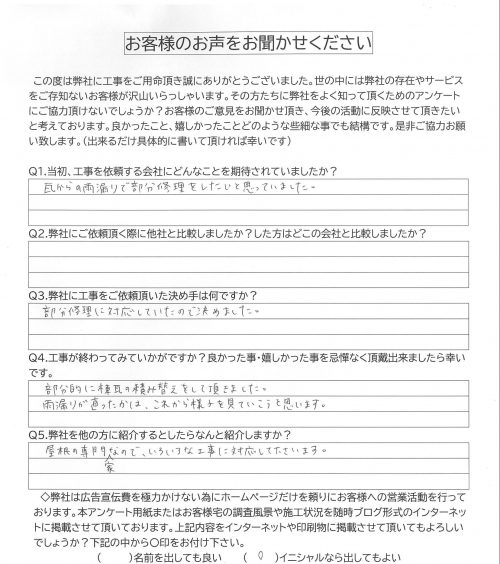 お客様のお声をお聞かせください
この度は弊社に工事をご用命頂き誠にありがとうございました。世の中には弊社の存在やサービス
をご存知ないお客様が沢山いらっしゃいます。その方たちに弊社をよく知って頂くためのアンケート
にご協力頂けないでしょうか？お客様のご意見をお聞かせ頂き、今後の活動に反映させて頂きたい
と考えております。良かったこと、嬉しかったことどのような些細な事でも結構です。是非ご協力お願
い致します。（出来るだけ具体的に書いて頂ければ幸いです）
Q1.当初、工事を依頼する会社にどんなことを期待されていましたか？
瓦からの雨漏りで部分修理をしたいと思っていました。
Q2.弊社にご依頼頂く際に他社と比較しましたか？した方はどこの会社と比較しましたか？
Q3.弊社に工事をご依頼頂いた決め手は何ですか？
部分修理に対応していたので決めました。
Q4.工事が終わってみていかがですか？良かった事・嬉しかった事を忌憚なく頂戴出来ましたら幸い
です。
部分的に棟瓦の積み替えをして頂きました。
雨漏りが直ったかは、これから様子を見ていこうと思います。
Q5.弊社を他の方に紹介するとしたらなんと紹介しますか？
屋根の専門家なので、いろいろな工事に対応してくださいます。
◇弊社は広告宣伝費を極力かけない為にホームページだけを頼りにお客様への営業活動を行って
おります。本アンケート用紙またはお客様宅の調査風景や施工状況を随時ブログ形式のインターネッ
トに掲載させて頂いております。上記内容をインターネットや印刷物に掲載させて頂いてもよろしい
でしょうか？下記の中から〇印をお付け下さい。
（　　）名前を出しても良い　（ 〇 ）イニシャルなら出してもよい